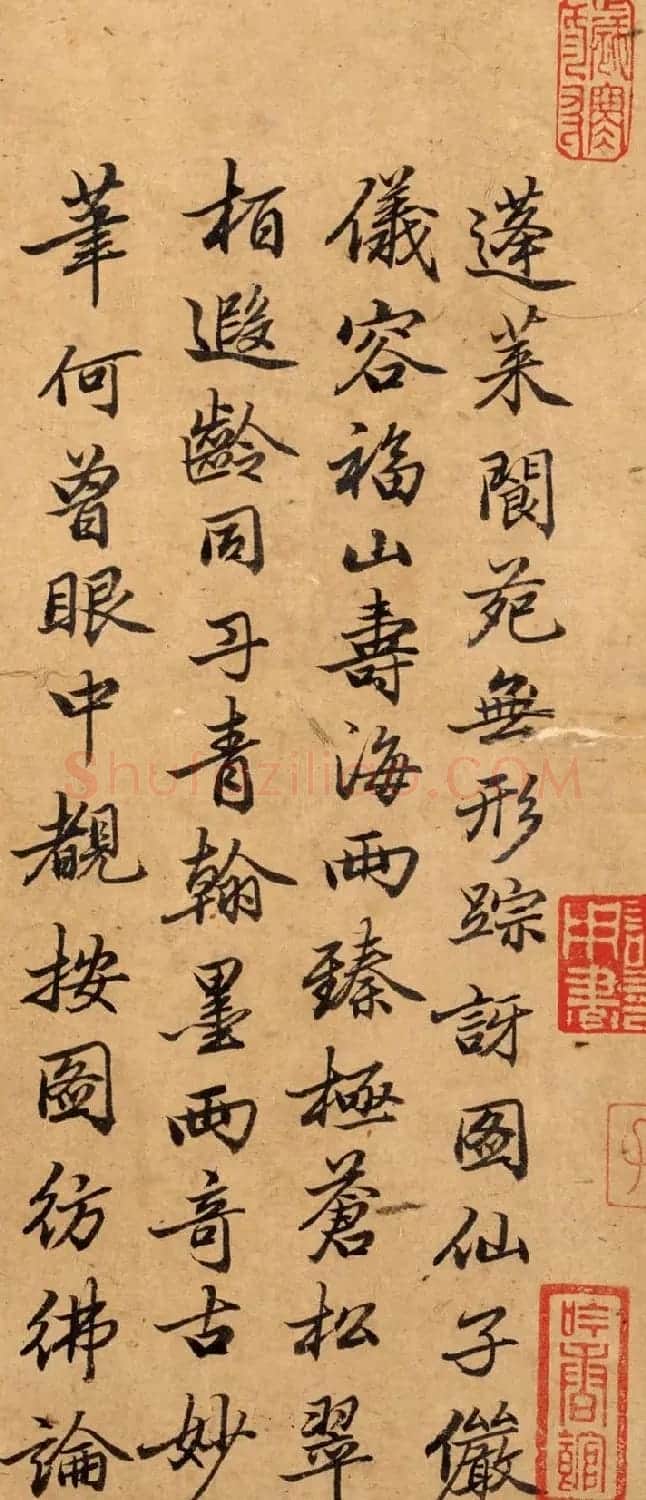 蓬萊閬苑無形踪訝圖仙子儼
儀容福山壽海兩臻極蒼松翠
栢遐齡同丹青翰墨兩竒古妙
筆何曾眼中覩按圖彷彿論
吟香館
Shufaziling.COM